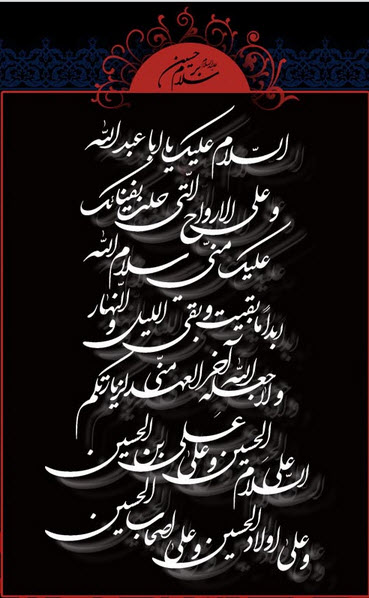 سلام بر حسین علیه السلام
السلام علیک یا ابا عبدالله
و علی الارواح التی حلت بفنائک
علیک منی سلام الله
ابداً ما بقیت و بقی اللیل و النهار
و لا جعله الله آخر العهد منی لزیارتکم
السلام علی الحسین و علی علی بن الحسین
و علی اولاد الحسین و علی اصحاب الحسین